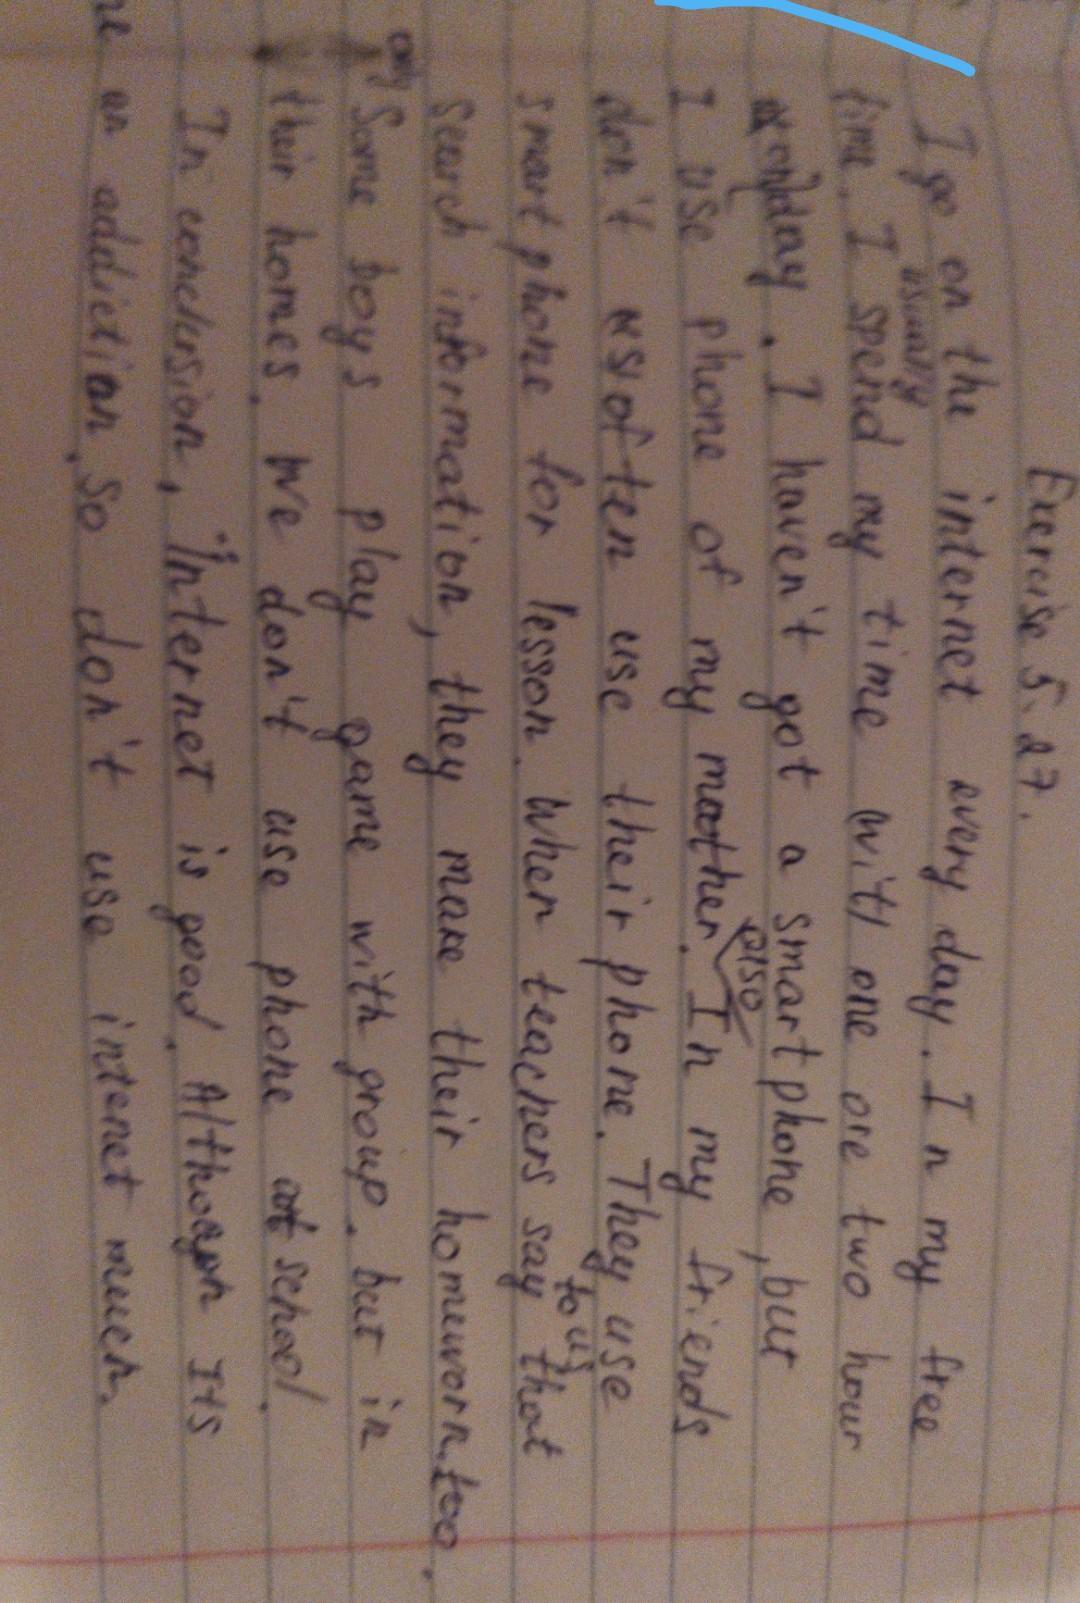 Exercise 5. 27.
I go on the internet every day. In my free
time. I usually spend my time with one ore two hour
onday. I haven't got a smartphone, but
I use phone of my mother. also In my friends
don't often use their phone. They use
smartphone for lesson. When teachers say to us that
search information, they make their homework too.
only Some boys play game with group. but in
their homes. We don't use phone at school.
In conclusion, Internet is good. Although Its
an addiction. So don't use internet much.